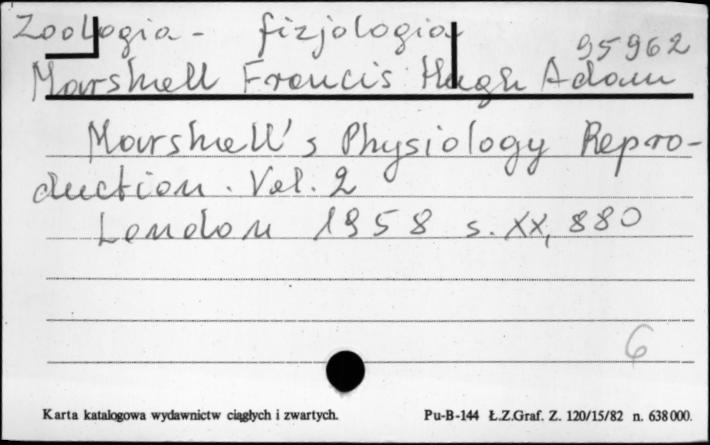 Zoologia - fizjologia
95962
Marshall Francis Hugh Adam
Marshall's Physiology Repro-
duction. Vol. 2
London 1958 s. XX, 880
6
Karta katalogowa wydawnictw ciągłych i zwartych.
Pu-B-144 Ł.Z.Graf. Z. 120/15/82 n. 638000.